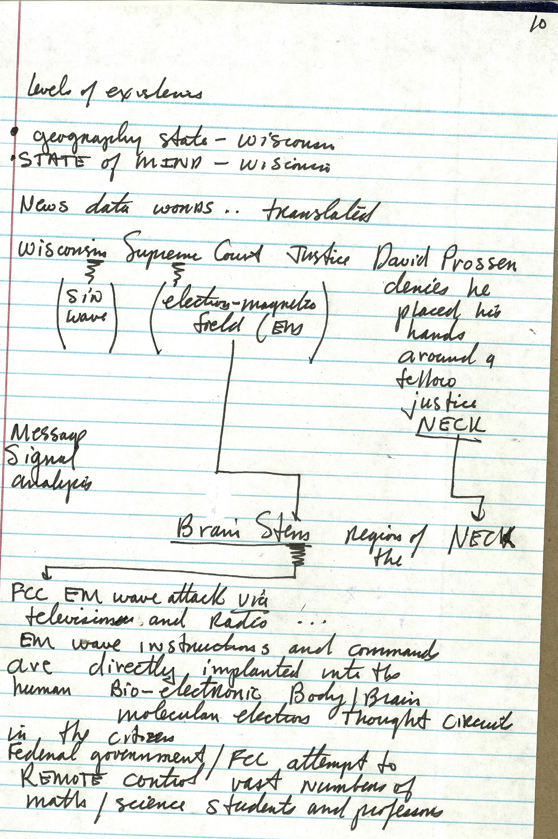 10
levels of existence
• geography state - Wisconsin
• STATE of MIND - Wisconsin
News data words .. translated
Wisconsin Supreme Court Justice David Prosser
(sin wave) (electro-magnetic field (EM))
denies he
placed his
hands
around a
fellow
justice
NECK
Message
Signal
analysis
Brain Stem region of the NECK
FCC EM wave attack via
television and Radio ...
EM wave instructions and commands
are directly implanted into the
human Bio-electronic Body/Brain
molecular electron thought circuit
in the citizens
Federal government/FCC attempt to
REMOTE control vast numbers of
maths/science students and professors